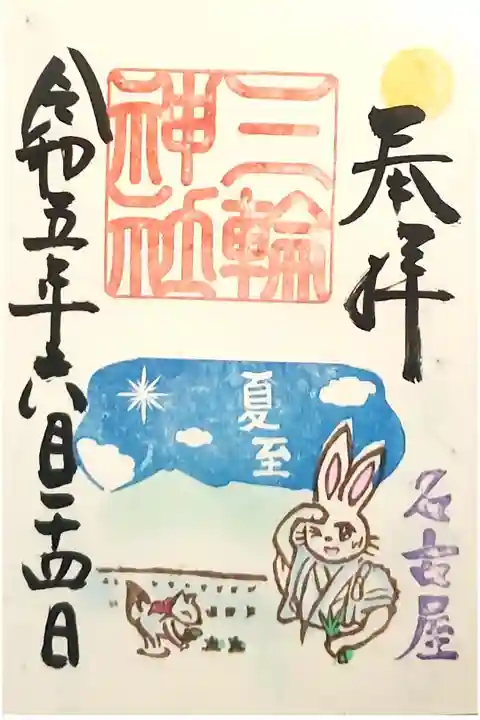 奉拝
名古屋
三輪
神社
夏至
令和五年六月二十四日